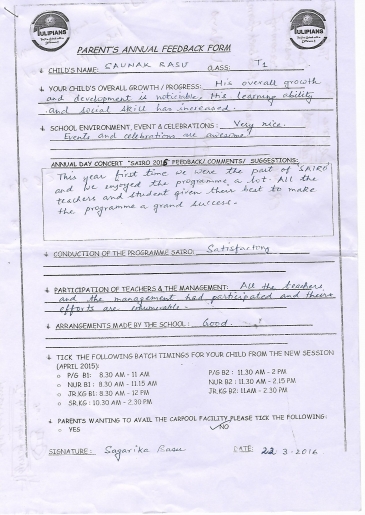 TULIPIANS TULIPIANS
PARENT'S ANNUAL FEEDBACK FORM
CHILD'S NAME: SAUNAK BASU CLASS: T1
YOUR CHILD'S OVERALL GROWTH / PROGRESS: His overall growth
and development is noticible. His learning ability
and social skill has increased.
SCHOOL ENVIRONMENT, EVENT & CELEBRATIONS: Very nice.
Events and celebrations are awesome.
ANNUAL DAY CONCERT "SAIRO 2016" FEEDBACK/ COMMENTS/ SUGGESTIONS:
This year first time we were the part of 'SAIRO'
and we enjoyed the programme a lot. All the
teachers and student given their best to make
the programme a grand success.
CONDUCTION OF THE PROGRAMME SAIRO: Satisfactory
PARTICIPATION OF TEACHERS & THE MANAGEMENT: All the teachers
and the management had participated and their
efforts are
ARRANGEMENTS MADE BY THE SCHOOL: Good.
TICK THE FOLLOWING BATCH TIMINGS FOR YOUR CHILD FROM THE NEW SESSION
(APRIL 2015):
P/G B1: 8.30 AM - 11 AM P/G B2 : 11.30 AM - 2 PM
NUR B1 : 8.30 AM - 11.15 AM NUR B2 : 11.30 AM - 2.15 PM
JR.KG B1: 8.30 AM - 12 PM JR.KG B2: 11AM - 2.30 PM
SR.KG : 10.30 AM - 2.30 PM
PARENTS WANTING TO AVAIL THE CARPOOL FACILITY PLEASE TICK THE FOLLOWING:
YES NO
SIGNATURE: Sagarika Basu DATE: 22 3-2016